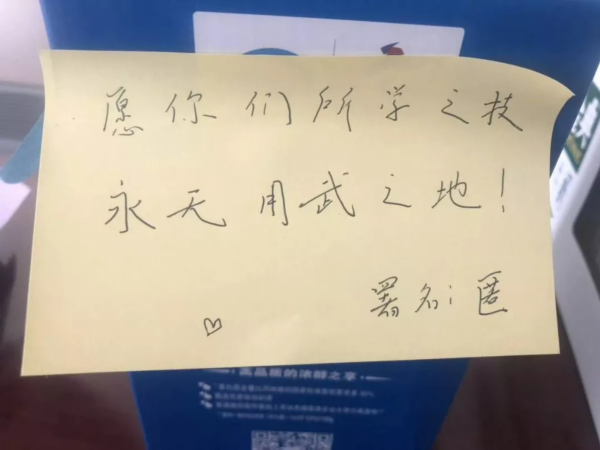 愿你们所学之技
永无用武之地！
署名：匿
高品质的浓醇之享